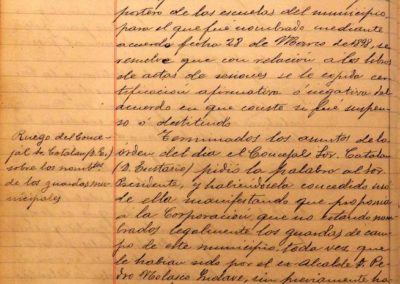 portero de las escuelas del municipio,
para el que fué nombrado mediante
acuerdo fecha 28 de Marzo de 1898, se
resuelve que con relación a los libros
de actas de sesiones se le expida cer-
tificación afirmativa ó negativa del
acuerdo en que conste si fué suspen-
so ó destituido
Terminados los asuntos de la
orden del día el Concejal Sor. Catalan
(D. Eustasio) pidió la palabra al Sor.
Presidente, y habiéndosela concedido usó
de ella manifestando que proponia
a la Corporación que no estando nom-
brados legalmente los guardas de cam-
po de este municipio, toda vez que
le habian sido por el ex-Alcalde D. Pe-
dro Nolasco sin previamente ha-
Ruego del Conce-
jal Sr. Catalan (D. Eu.)
sobre los nombtos.
de los guardas mu-
nicipales